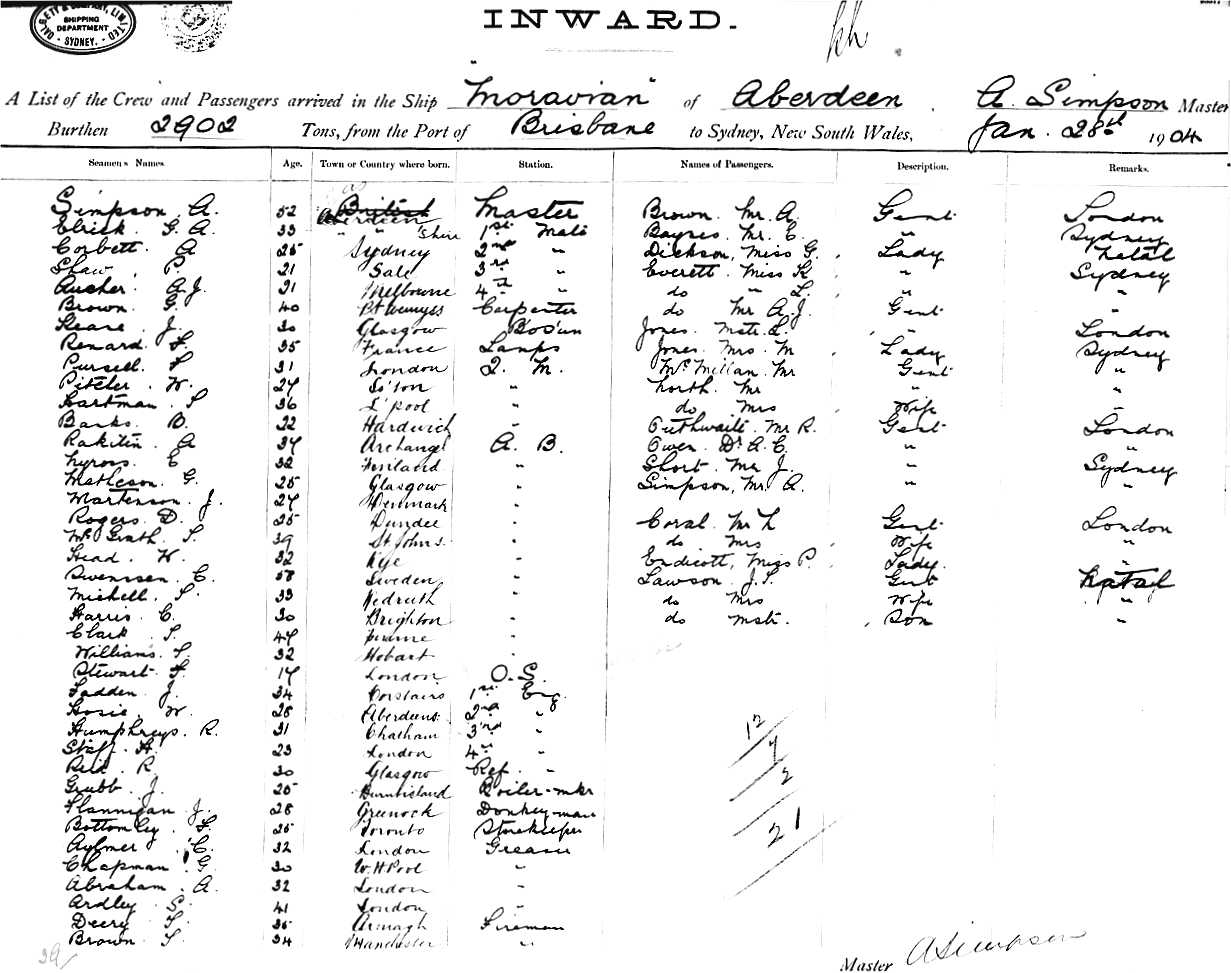 DALGETY & COMPANY, LIMITED
SHIPPING
DEPARTMENT
SYDNEY.
INWARD.
A List of the Crew and Passengers arrived in the Ship "Moravian" of Aberdeen. A. Simpson Master
Burthen 2902 Tons, from the Port of Brisbane to Sydney, New South Wales, Jan. 28th 1904
Seamen's Names. Age. Town or Country where born. Station. Names of Passengers. Description. Remarks.
Simpson. A. 52 British Aberdeen Master Brown. Mr. A. Gent London
Elrick. G. A. 33 " " 'shire 1st Mate Baynes. Mr. E. " Sydney
Corbett. A 25 Sydney 2nd " Dickson, Miss G. Lady Natal
Shaw. P. 21 Sale 3rd " Everett. Miss K " Sydney
A.J. 21 Melbourne 4th " do " L. " "
Brown. G. 40 Pt Wemyss Carpenter do Mr A.J. Gent "
Keare. J. 30 Glasgow Bos'un Jones. Mstr. L. " London
Renard. F. 35 France Lamps Jones. Mrs. M Lady Sydney
Pursell. F 31 London Q. M. McMillan. Mr Gent "
W. 27 So'ton " North. Mr " "
Hartman. S 36 L'pool " do Mrs Wife "
Banks. B. 22 Hardwich " Outhwaite. Mr R. Gent London
Rakitin. A 37 Archangel A. B. Owen. Dr A. C. " "
E 32 Finland " Short. Mr J. " Sydney
Matheson. G. 25 Glasgow " Simpson, Mr. A. " "
Martenson. J. 27 Denmark "
Rogers. D. 25 Dundee " Coral. Mr L Gent London
McGrath. S. 39 St John's " do Mrs Wife "
Head. W. 32 Rye " Endicott, Miss P. Lady. "
Swenssen. C. 58 Sweden " Lawson. J.S. Gent Natal
Mishell. S. 33 Redruth " do Mrs Wife "
Harris. C. 30 Brighton " do Mstr. Son "
Clark. S. 47 "
Williams. S. 32 Hobart "
Stewart. F. 17 London O.S.
Fadden. J. 34 Corstairs 1st Eng.
Hosie. W. 28 Aberdeens. 2nd "
Humphreys. R. 31 Chatham 3rd " 12
Staff. H. 23 London 4th " 7
Reid. R 30 Glasgow Ref. " 2
Grubb. J. 25 Burntisland Boiler-mkr
Flannigan J. 28 Greenock Donkey-man 21
Bottomley. F. 25 Toronto Storekeeper
Aylmer. C. 32 London Greaser
Chapman. G. 30 W. H. Pool "
Abraham. A. 32 London "
Ardley. S. 41 London "
Deery. S. 35 Armagh Fireman
Brown. S. 34 Manchester "
39/
Master A Simpson